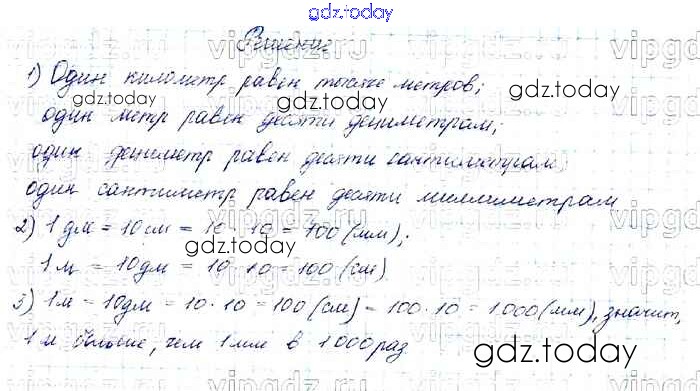 gdz.today
Решение
1) Один километр равен тысяче метров;
gdz.today gdz.today
один метр равен десяти дециметрам;
один дециметр равен десяти сантиметрам
один сантиметр равен десяти миллиметрам
2) 1 дм = 10 см = 10 · 10 = 100 (мм);
gdz.today
1 м = 10 дм = 10 · 10 = 100 (см)
3) 1 м = 10 дм = 10 · 10 = 100 (см) = 100 · 10 = 1000 (мм), значит,
1 м больше, чем 1 мм в 1000 раз
gdz.today